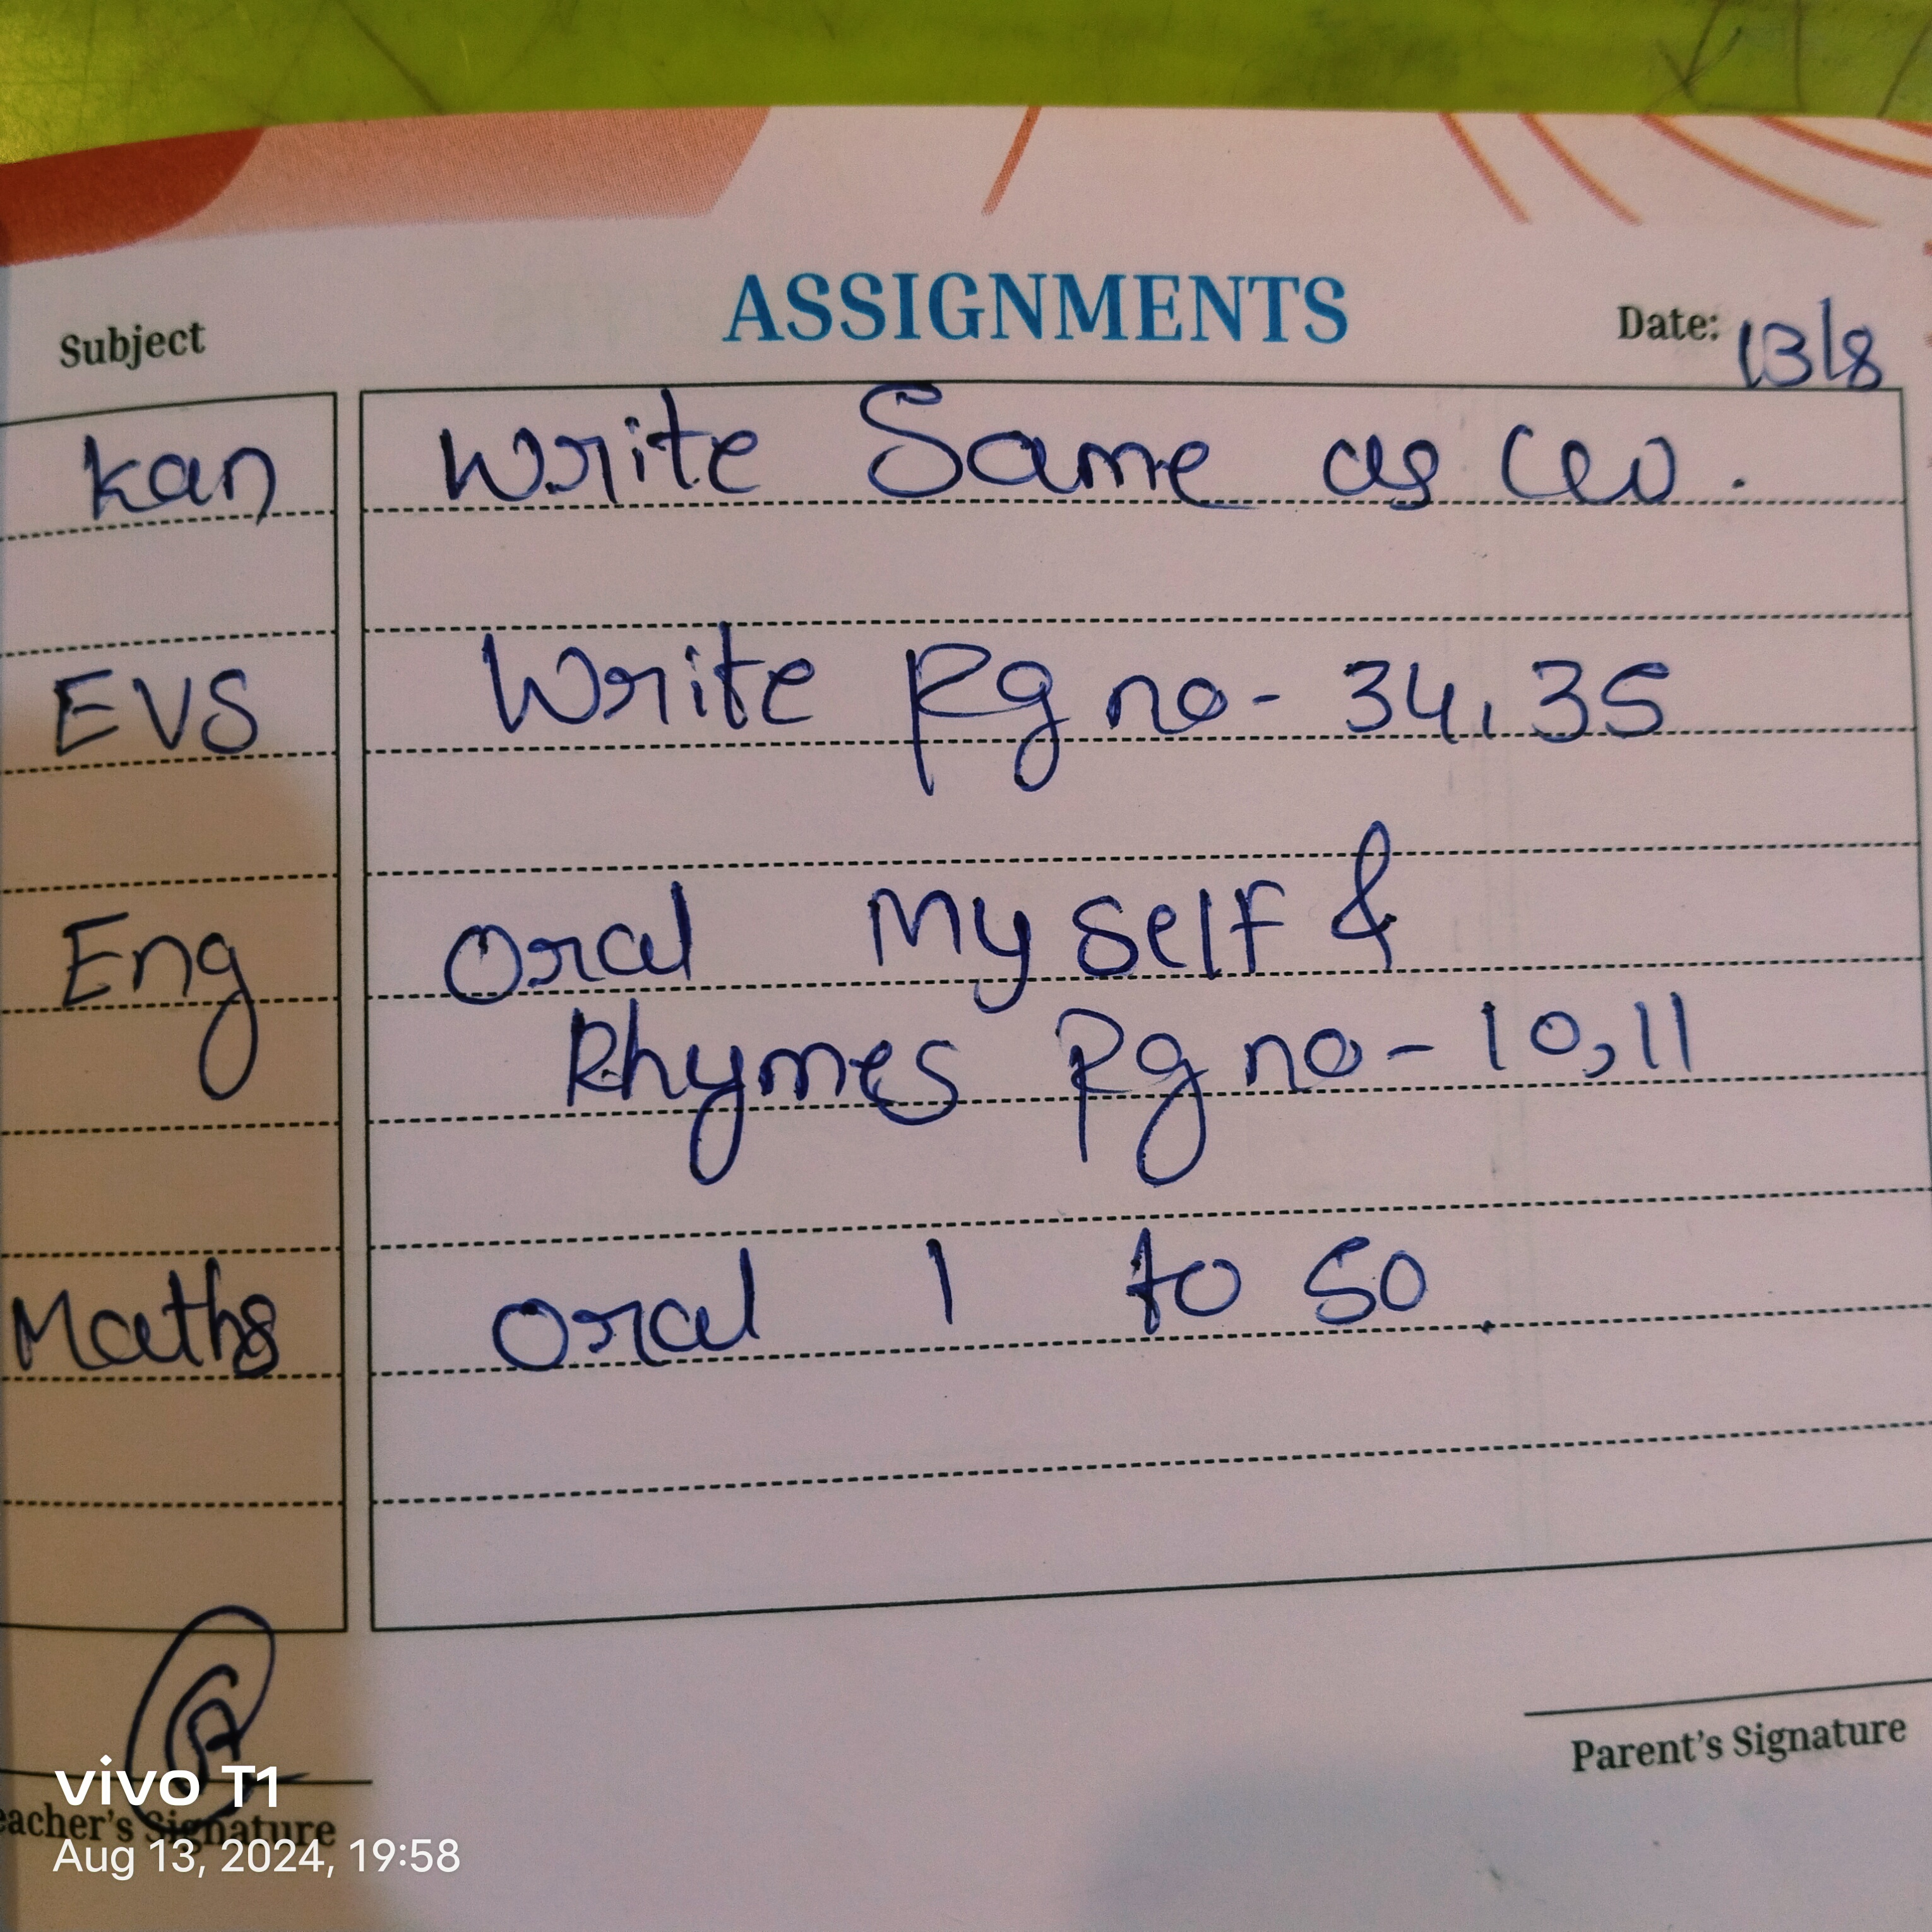 ASSIGNMENTS
Subject
Date: 13/8
Kan Write Same as CW.
EVS Write Pg no- 34, 35
Eng Oral My self &
Rhymes Pg no- 10, 11
Maths Oral 1 to 50.
Parent's Signature
eacher's Signature
vivo T1
Aug 13, 2024, 19:58